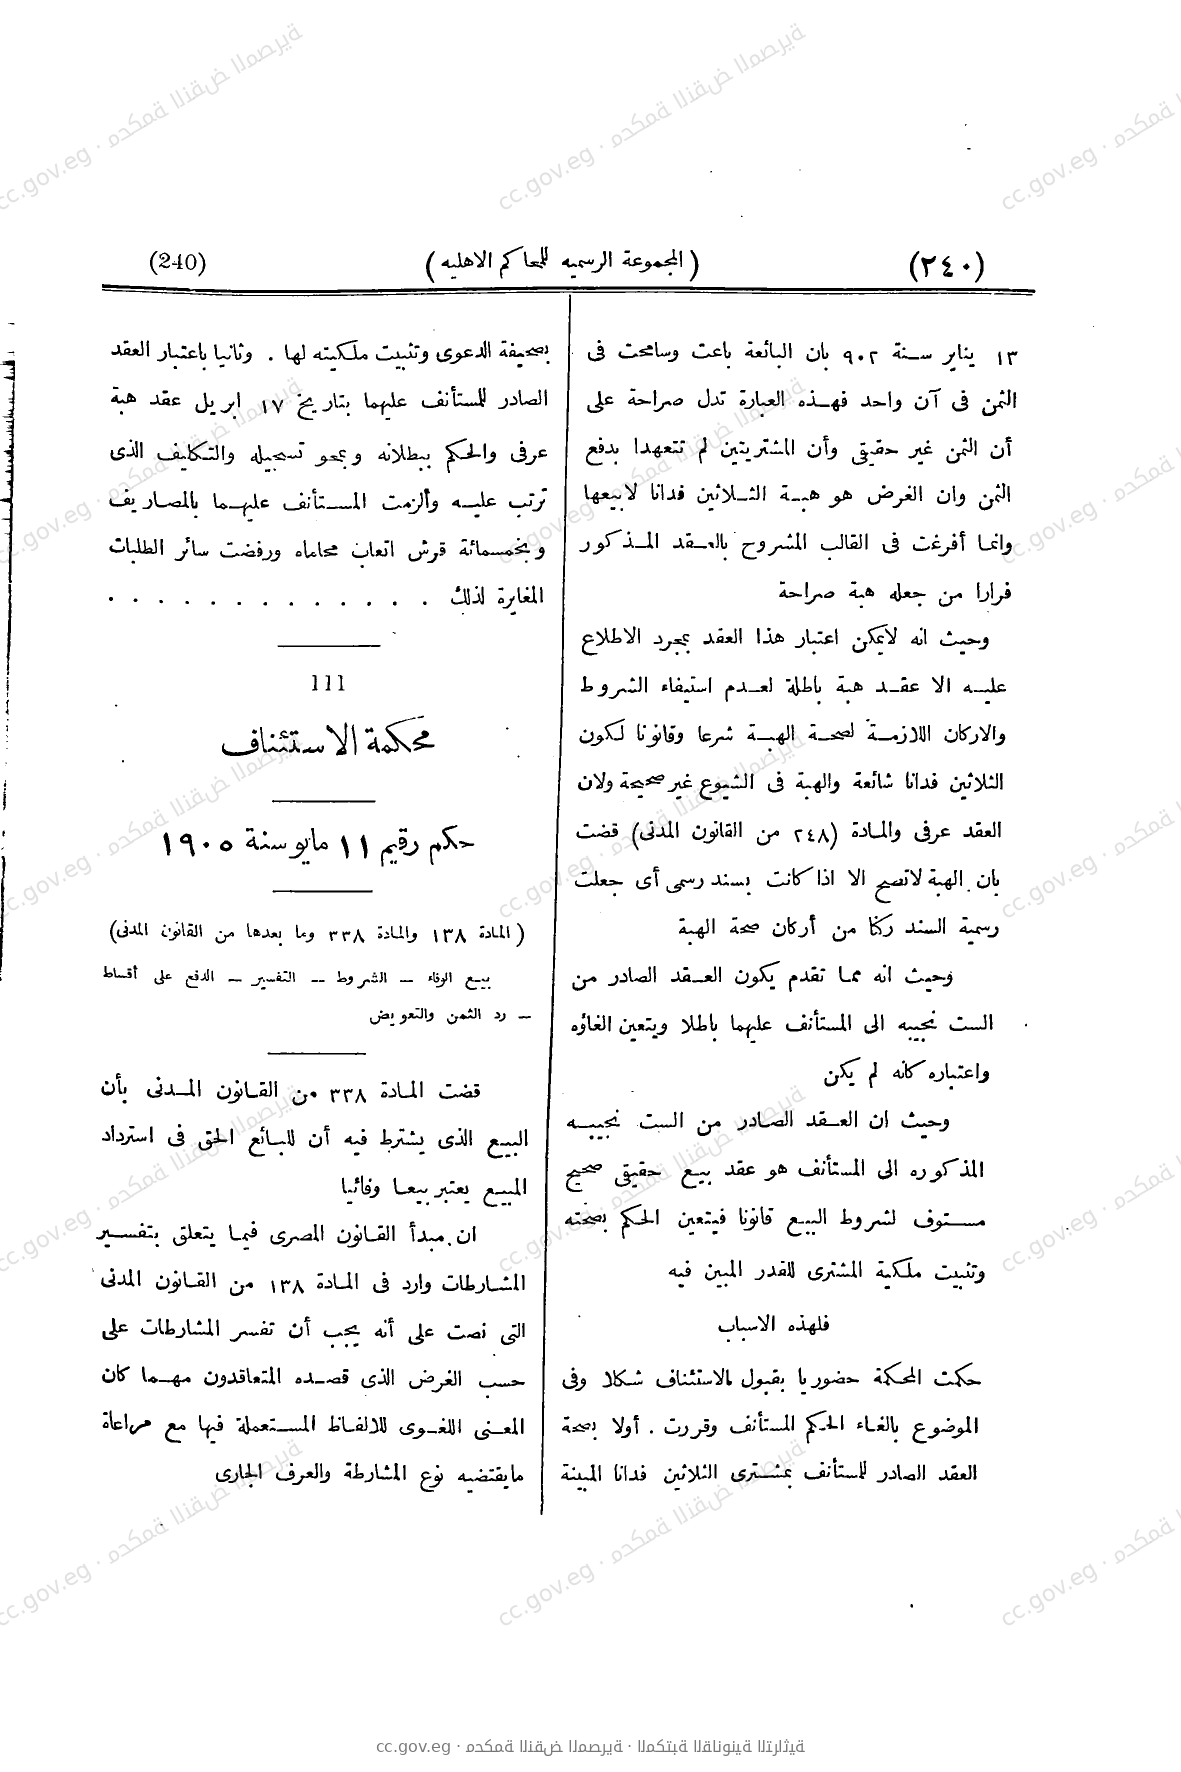 (٢٤٠)
(المجموعة الرسميه للمحاكم الاهليه)
(240)
١٣ يناير سنة ٩٠٢ بان البائعة باعت وسامحت فى
الثمن فى آن واحد فهذه العبارة تدل صراحة على
أن الثمن غير حقيقى وأن المشتريتين لم تتعهدا بدفع
الثمن وان الغرض هو هبة الثلاثين فدانا لابيعها
وانما أفرغت فى القالب المشروح بالعقد المذكور
فرارا من جعله هبة صراحة
وحيث انه لايمكن اعتبار هذا العقد بمجرد الاطلاع
عليه الا عقد هبة باطلة لعدم استيفاء الشروط
والاركان اللازمة لصحة الهبة شرعا وقانونا لكون
الثلاثين فدانا شائعة والهبة فى الشيوع غير صحيحة ولان
العقد عرفى والمادة (٢٤٨ من القانون المدنى) قضت
بان الهبة لاتصح الا اذا كانت بسند رسمى أى جعلت
رسمية السند ركنا من أركان صحة الهبة
وحيث انه مما تقدم يكون العقد الصادر من
الست نجيبه الى المستأنف عليهما باطلا ويتعين الغاؤه
واعتباره كانه لم يكن
وحيث ان العقد الصادر من الست نجيبه
المذكوره الى المستأنف هو عقد بيع حقيقى صحيح
مستوف لشروط البيع قانونا فيتعين الحكم بصحته
وتثبيت ملكية المشترى للقدر المبين فيه
فلهذه الاسباب
حكمت المحكمة حضوريا بقبول الاستئناف شكلا وفى
الموضوع بالغاء الحكم المستأنف وقررت . أولا بصحة
العقد الصادر للمستأنف بمشترى الثلاثين فدانا المبينة
بصحيفة الدعوى وتثبيت ملكيته لها . وثانيا باعتبار العقد
الصادر للمستأنف عليهما بتاريخ ١٧ ابريل عقد هبة
عرفى والحكم ببطلانه وبمحو تسجيله والتكليف الذى
ترتب عليه وألزمت المستأنف عليهما بالمصاريف
وبخمسمائة قرش اتعاب محاماه ورفضت سائر الطلبات
المغايرة لذلك . . . . . . . . . . . . .
111
محكمة الاستئناف
حكم رقيم ١١ مايو سنة ١٩٠٥
(المادة ١٣٨ والمادة ٣٣٨ وما بعدها من القانون المدنى)
بيع الوفاء – الشروط – التفسير – الدفع على أقساط
– رد الثمن والتعويض
قضت المادة ٣٣٨ من القانون المدنى بأن
البيع الذى يشترط فيه أن للبائع الحق فى استرداد
المبيع يعتبر بيعا وفائيا
ان مبدأ القانون المصرى فيما يتعلق بتفسير
المشارطات وارد فى المادة ١٣٨ من القانون المدنى
التى نصت على أنه يجب أن تفسر المشارطات على
حسب الغرض الذى قصده المتعاقدون مهما كان
المعنى اللغوى للالفاظ المستعملة فيها مع مراعاة
مايقتضيه نوع المشارطة والعرف الجارى
cc.gov.eg · محكمة النقض المصرية · المكتبة القانونية التراثية